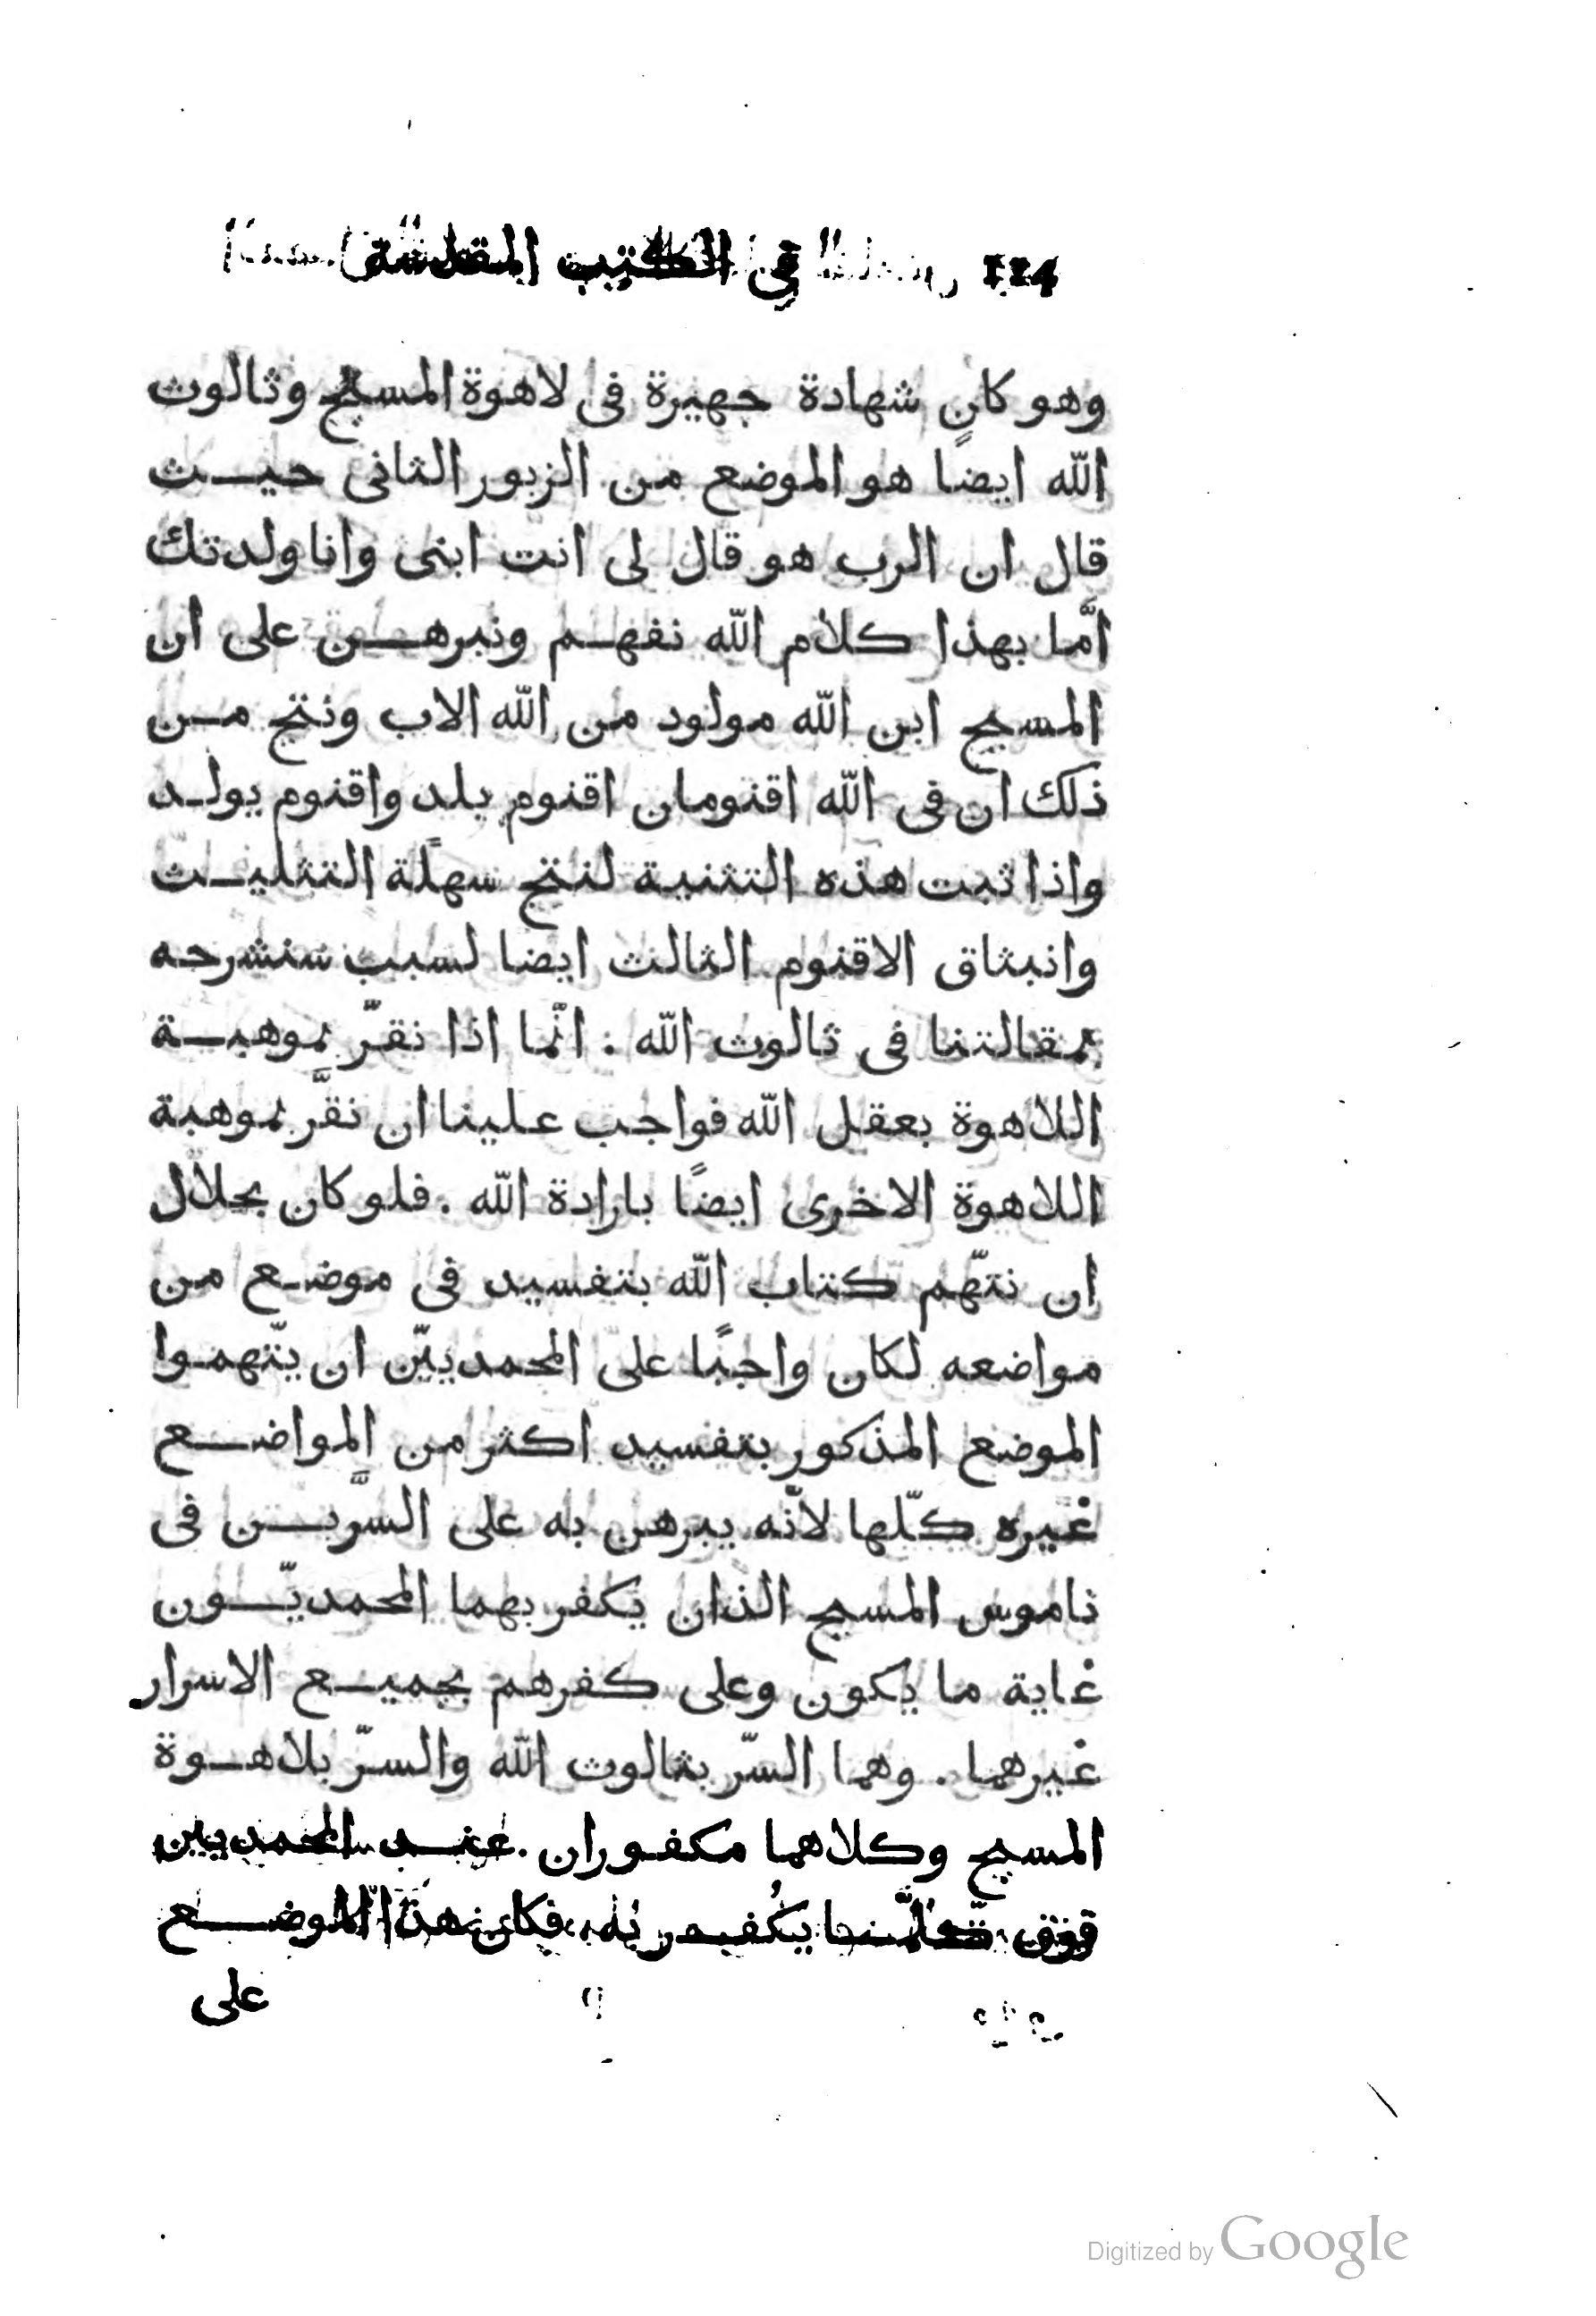 114 في الكتب المقدسة
وهو كان شهادة جهيرة فى لاهوة المسيح وثالوث
الله ايضًا هو الموضع من الزبور الثانى حيث
قال ان الرب هو قال لى انت ابنى وانا ولدتك
امّا بهذا كلام الله نفهم ونبرهن على ان
المسيح ابن الله مولود من الله الاب ونتج من
ذلك ان فى الله اقنومان اقنوم يلد واقنوم يولد
واذا ثبت هذه التثنية لنتج سهلة التثليث
وانبثاق الاقنوم الثالث ايضا لسبب سنشرحه
بمقالتنا فى ثالوث الله : انّما اذا نقرّ بموهبة
اللاهوة بعقل الله فواجب علينا ان نقرّ بموهبة
اللاهوة الاخرى ايضًا بارادة الله . فلو كان بحلال
ان نتّهم كتاب الله بتفسيد فى موضع من
مواضعه لكان واجبًا على المحمديّين ان يتّهموا
الموضع المذكور بتفسيد اكثر من المواضع
غيره كلّها لانّه يبرهن به على السرّين فى
ناموس المسيح الذان يكفر بهما المحمديّون
غاية ما يكون وعلى كفرهم بجميع الاسرار
غيرهما . وهما السرّ بثالوث الله والسرّ بلاهوة
المسيح وكلاهما مكفوران عند المحمديين
فوق يكفر به فكان هذا الموضع
على
Digitized by Google